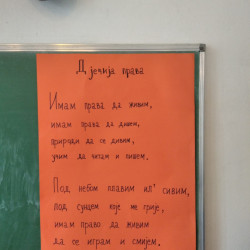 Дјечија права
Имам права да живим,
имам права да дишем,
природи да се дивим,
учим да читам и пишем.
Под небом плавим ил' сивим,
под сунцем које ме грије,
имам право да живим
да се играм и смијем.